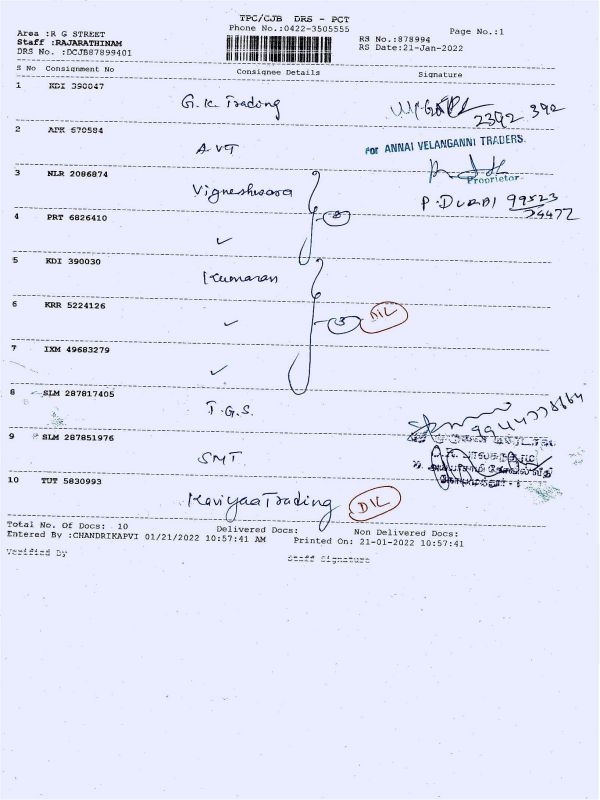 TPC/CJB DRS - PCT
Phone No.:0422-3505555
Page No.:1
Area :R G STREET
Staff :RAJARATHINAM
DRS No. :DCJB87899401
RS No.:878994
RS Date:21-Jan-2022
S No Consignment No Consignee Details Signature
1 KDI 390047
G.K. Trading
2392 392
2 APK 670584
A VT
For ANNAI VELANGANNI TRADERS.
Proprietor
3 NLR 2086874
Vigneshwara
P. DURAI 99523
24472
4 PRT 6826410
✓
2
5 KDI 390030
Kumaran
6 KRR 5224126
✓
3 DIL
7 IXM 49683279
✓
8 SLM 287817405
T.G.S.
9 SLM 287851976
SMT
10 TUT 5830993
Kaviyaa Trading DIL
Total No. Of Docs: 10 Delivered Docs: Non Delivered Docs:
Entered By :CHANDRIKAPVI 01/21/2022 10:57:41 AM Printed On: 21-01-2022 10:57:41
Verified By Staff Signature